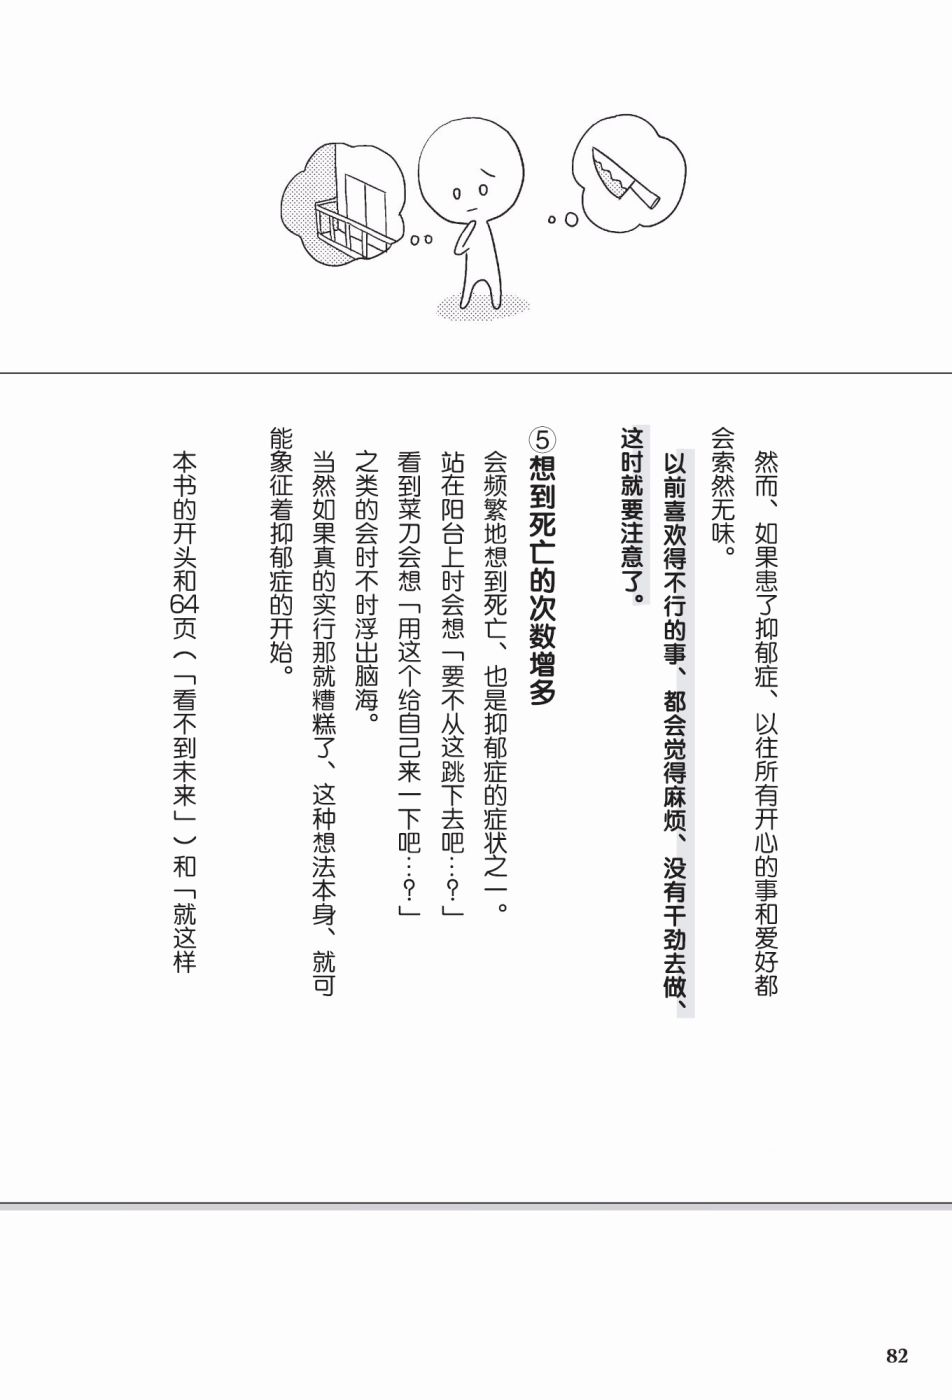 然而、如果患了抑郁症、以往所有开心的事和爱好都
会索然无味。
以前喜欢得不行的事、都会觉得麻烦、没有干劲去做、
这时就要注意了。
⑤想到死亡的次数增多
会频繁地想到死亡、也是抑郁症的症状之一。
站在阳台上时会想「要不从这跳下去吧…?」
看到菜刀会想「用这个给自己来一下吧…?」
之类的会时不时浮出脑海。
当然如果真的实行那就糟糕了、这种想法本身、就可
能象征着抑郁症的开始。
本书的开头和64页(「看不到未来」)和「就这样
82